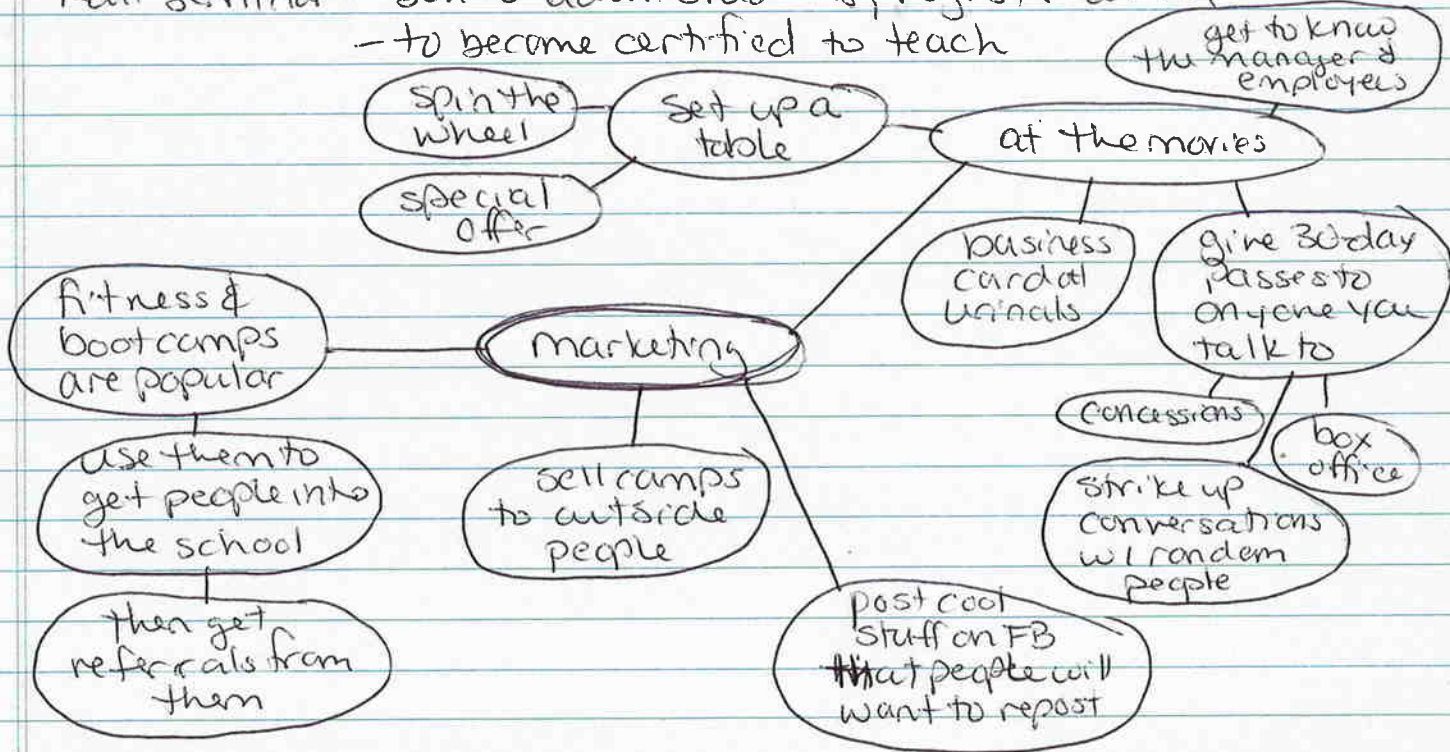 - to become certified to teach
get to know
the manager &
employees
spin the
wheel
set up a
table
at the movies
special
offer
business
card at
urinals
give 30-day
passes to
anyone you
talk to
fitness &
bootcamps
are popular
marketing
concessions
box
office
use them to
get people into
the school
sell camps
to outside
people
strike up
conversations
w/ random
people
then get
referrals from
them
post cool
stuff on FB
that people will
want to repost